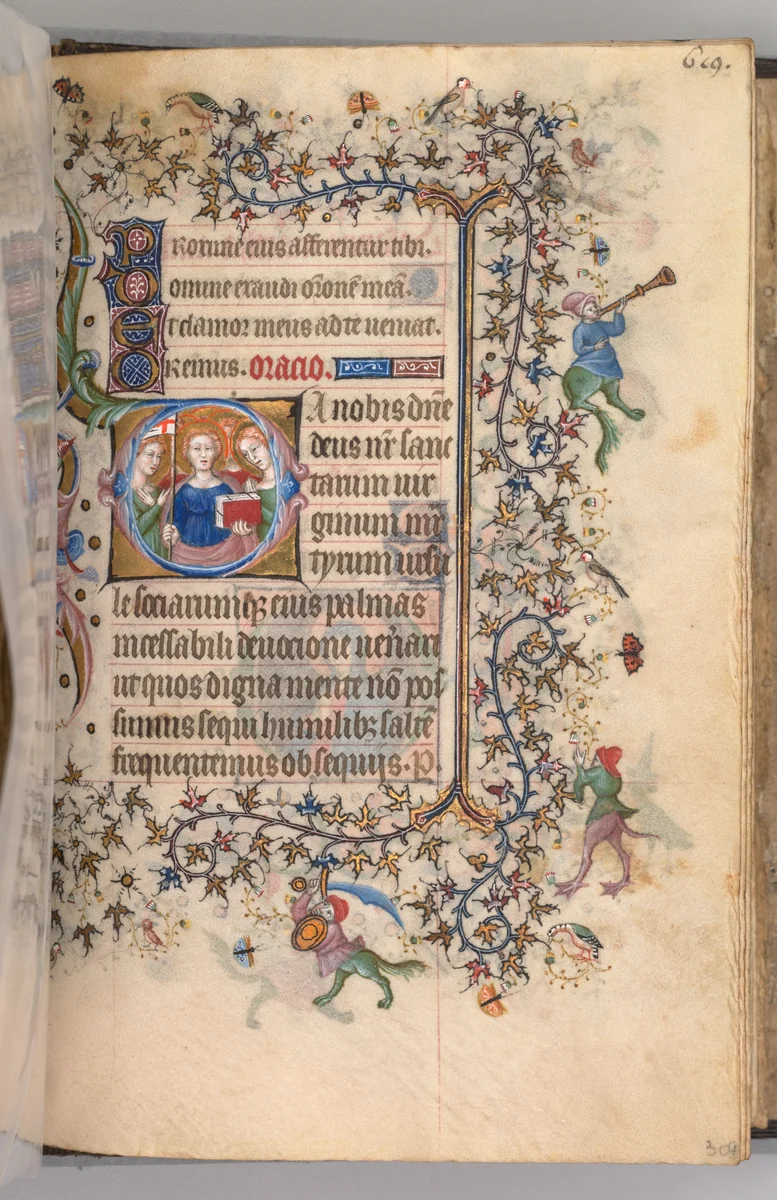 619.
Proxime eius afferentur tibi.
Domine exaudi orõnẽ meã.
Et clamor meus ad te ueniat.
Oremus. Oracio.
DA nobis dñe
deus nr̃ sanc
tarum uir
ginum mr̃
tyrum ursu
le sociarumqꝫ eius palmas
incessabili deuocione uenãri
ut quos digna mente nõ pos
sumus sequi humilibꝫ saltẽ
frequentemus obsequijs. P.
309